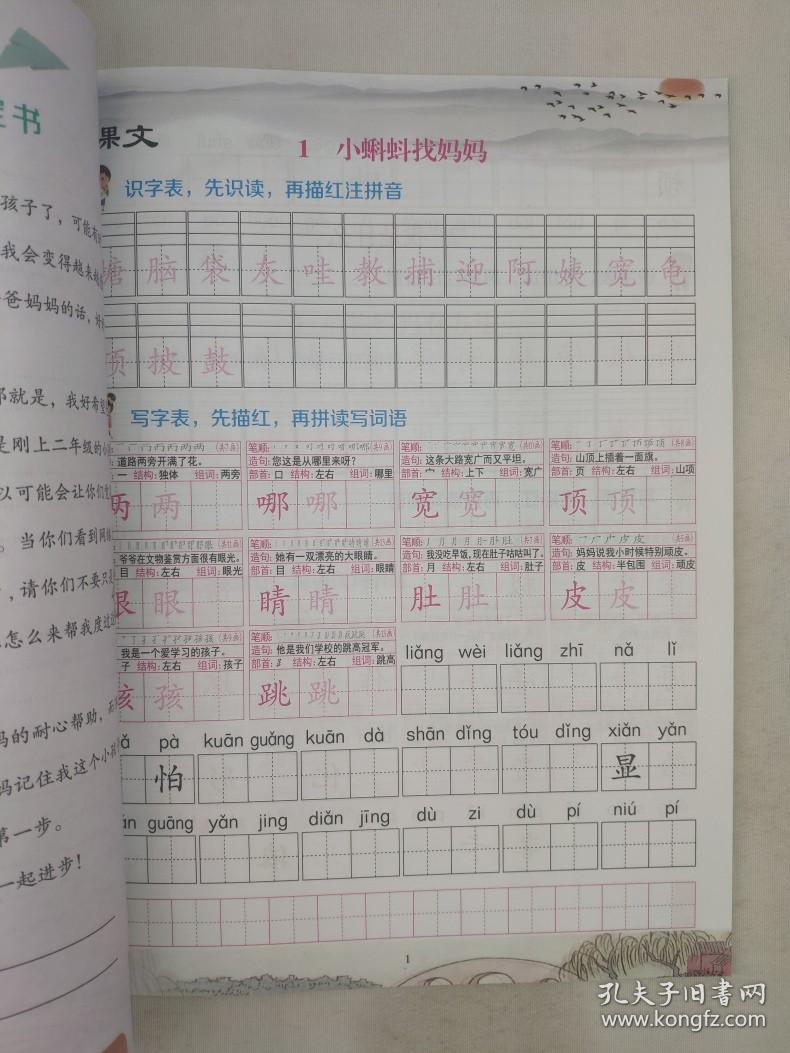 宝书
孩子了，可能有
我会变得越来越
爸妈妈的话，好
那就是，我好希望
是刚上二年级的小
以可能会让你们
。当你们看到
，请你们不要只
怎么来帮我度过
妈的耐心帮助，
妈记住我这个小
第一步。
一起进步！
课文
1 小蝌蚪找妈妈
识字表，先识读，再描红注拼音
塘 脑 袋 灰 哇 教 捕 迎 阿 姨 宽 龟
顶 披 鼓
写字表，先描红，再拼读写词语
(共7画) 笔顺: (共9画) 笔顺: (共10画) 笔顺: (共8画)
道路两旁开满了花。 造句: 您这是从哪里来呀? 造句: 这条大路宽广而又平坦。 造句: 山顶上插着一面旗。
一 结构: 独体 组词: 两旁 部首: 口 结构: 左右 组词: 哪里 部首: 宀 结构: 上下 组词: 宽广 部首: 页 结构: 左右 组词: 山顶
两 两 哪 哪 宽 宽 顶 顶
(共11画) 笔顺: (共13画) 笔顺: (共7画) 笔顺: (共5画)
爷爷在文物鉴赏方面很有眼光。 造句: 她有一双漂亮的大眼睛。 造句: 我没吃早饭,现在肚子咕咕叫了。 造句: 妈妈说我小时候特别顽皮。
目 结构: 左右 组词: 眼光 部首: 目 结构: 左右 组词: 眼睛 部首: 月 结构: 左右 组词: 肚子 部首: 皮 结构: 半包围 组词: 顽皮
眼 眼 睛 睛 肚 肚 皮 皮
(共9画) 笔顺: (共13画)
我是一个爱学习的孩子。 造句: 他是我们学校的跳高冠军。
子 结构: 左右 组词: 孩子 部首: 结构: 左右 组词: 跳高
孩 孩 跳 跳
liǎng wèi liǎng zhī nǎ lǐ
pà kuān guǎng kuān dà shān dǐng tóu dǐng xiǎn yǎn
怕 显
guāng yǎn jing diǎn jīng dù zi dù pí niú pí
1
孔夫子旧书网
www.kongfz.com